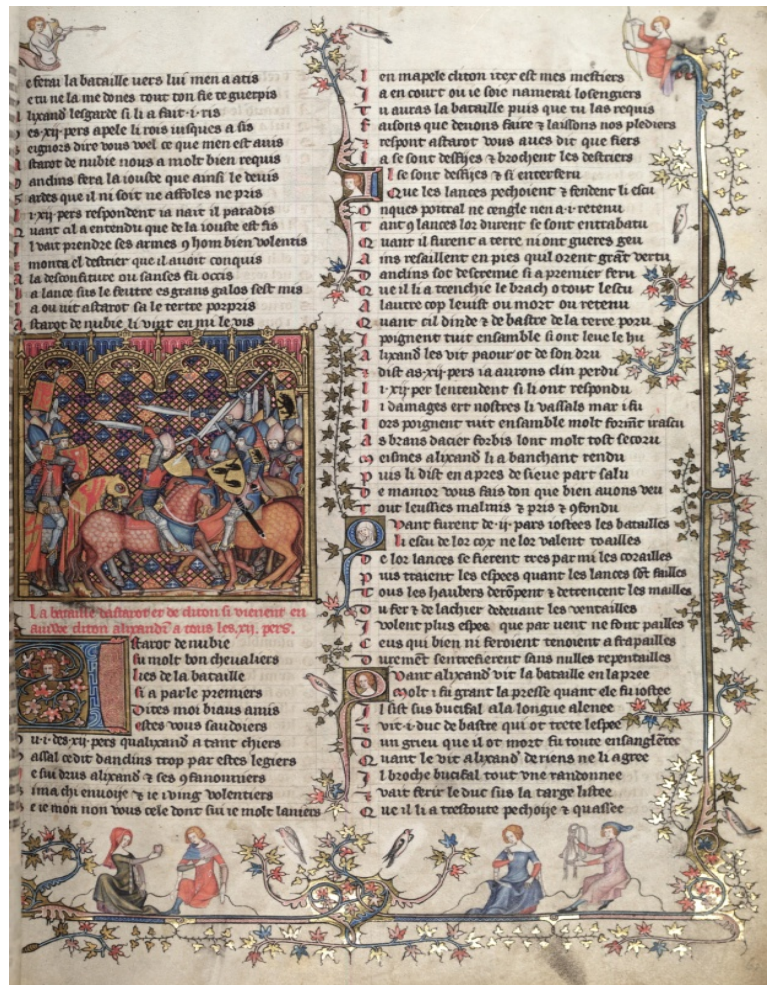 e ferai la bataille uers lui men a atis
e tu ne la me dones tout ton fie te guerpis
l lixand lesgarde si li a fait .i. ris
es .xij. pers apele li rois iusques a sis
eignors dire vous voel ce que men est auis
starot de nubie nous a molt bien requis
D andins fera la iouste que ainsi le deuis
G ardes que il ni soit ne affoles ne pris
L i .xij. pers respondent ia nait il paradis
Q uant cil a entendu que de la iouste est fis
I l vait prendre ses armes 9 hom bien volentis
E monta el destrier que il auoit conquis
A la desconfiture ou sanses fu occis
L a lance sus le feutre es grans galos sest mis
L a ou vit astarot sa le tertre porpris
A starot de nubie li vint en mi le vis
La bataille dastarot et de cliton si vienent en
aiude cliton alixandre a tous les .xij. pers.
Astarot de nubie
fu molt bon cheualiers
lies de la bataille
si a parle premiers
Dites moi biaus amis
estes vous saudoiers
u .i. des .xij. pers qualixand a tant chiers
assal ce dit danclins trop par estes legiers
e sui drus alixand & ses 9fanonniers
i ma chi enuoije & ie i ving volentiers
e ie mon non vous cele dont sui ie molt laniers
I en mapele cliton itex est mes mestiers
I a en court ou ie soie namerai losengiers
T u auras la bataille puis que tu las requis
F aisons que deuons faire & laissons nos plediers
E respont astarot vous aues dit que fiers
I a se sont deffijes & brochent les destriers
Il se sont deffijes & si enterferu
Que les lances pechoient & fendent li escu
O nques poitral ne cengle nen a .i. retenu
T ant 9 lances lor durent se sont entrabatu
Q uant il furent a terre ni ont gueres geu
A ins resaillent en pies qui orent grant vertu
D anclins sot descremie si a premier feru
Q ue il li a trenchie le brach o tout lescu
A lautre cop leuist ou mort ou retenu
Q uant cil dinde & de bastre de la terre poru
I poignent tuit ensamble si ont leue le hu
A lixand les vit paour ot de son dru
E dist as .xij. pers ia aurons clin perdu
L i .xij. per lentendent si li ont respondu
L i damages ert nostres li vassals mar i fu
L ors poignent tuit ensamble molt forment irascu
A s brans dacier forbis lont molt tost secoru
M eismes alixand li a banchant rendu
P uis li dist en apres de sieue part salu
D e mamor vous fais don que bien auons veu
T out leussies malmis & pris & 9fondu
Quant furent de .ij. pars iostees les batailles
li escu de lor cox ne lor valent toailles
D e lor lances se fierent tres par mi les corailles
P uis traient les espees quant les lances sont failles
T ous les haubers derompent & detrencent les mailles
D u fer & de lachier dedeuant les ventailles
I volent plus espes que par vent ne font pailles
C eus qui bien ni feroient tenoient a frapailles
D urement sentrefierent sans nulles repentailles
Quant alixand vit la bataille en la pree
molt i fu grant la presse quant ele fu iostee
I l sist sus bucifal a la longue alenee
E vit .i. duc de bastre qui ot trete lespee
D un grieu que il ot mort fu toute ensanglentee
Q uant le vit alixand de riens ne li agree
I l broche bucifal tout vne randonnee
E vait ferir le duc sus la targe listee
Q ue il li a trestoute pechoije & quassee